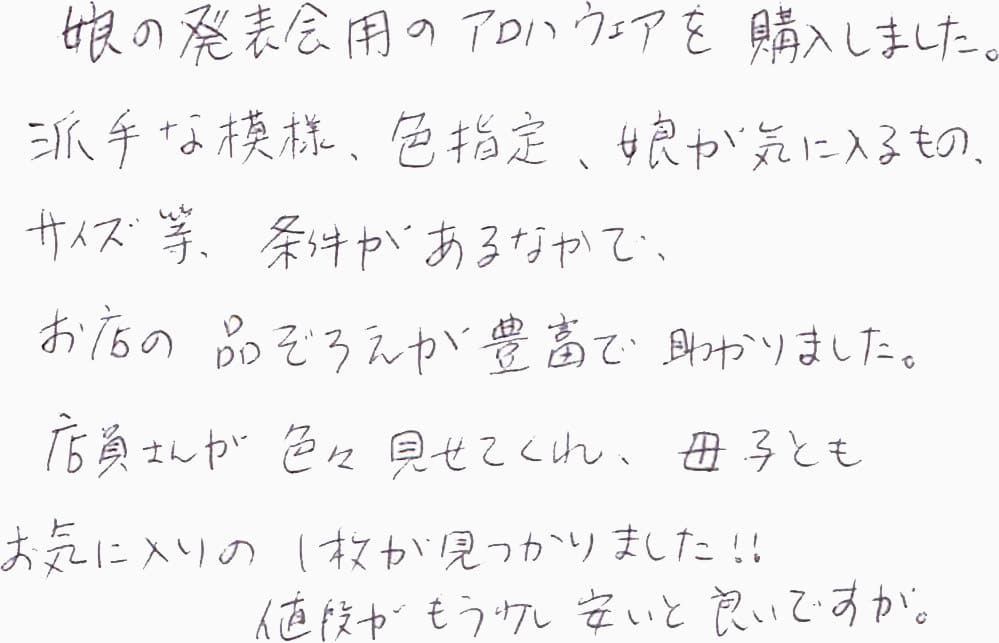 娘の発表会用のアロハウェアを購入しました。
派手な模様、色指定、娘が気に入るもの、
サイズ等、条件があるなかで、
お店の品ぞろえが豊富で助かりました。
店員さんが色々見せてくれ、母子とも
お気に入りの1枚が見つかりました!!
値段がもう少し安いと良いですが。